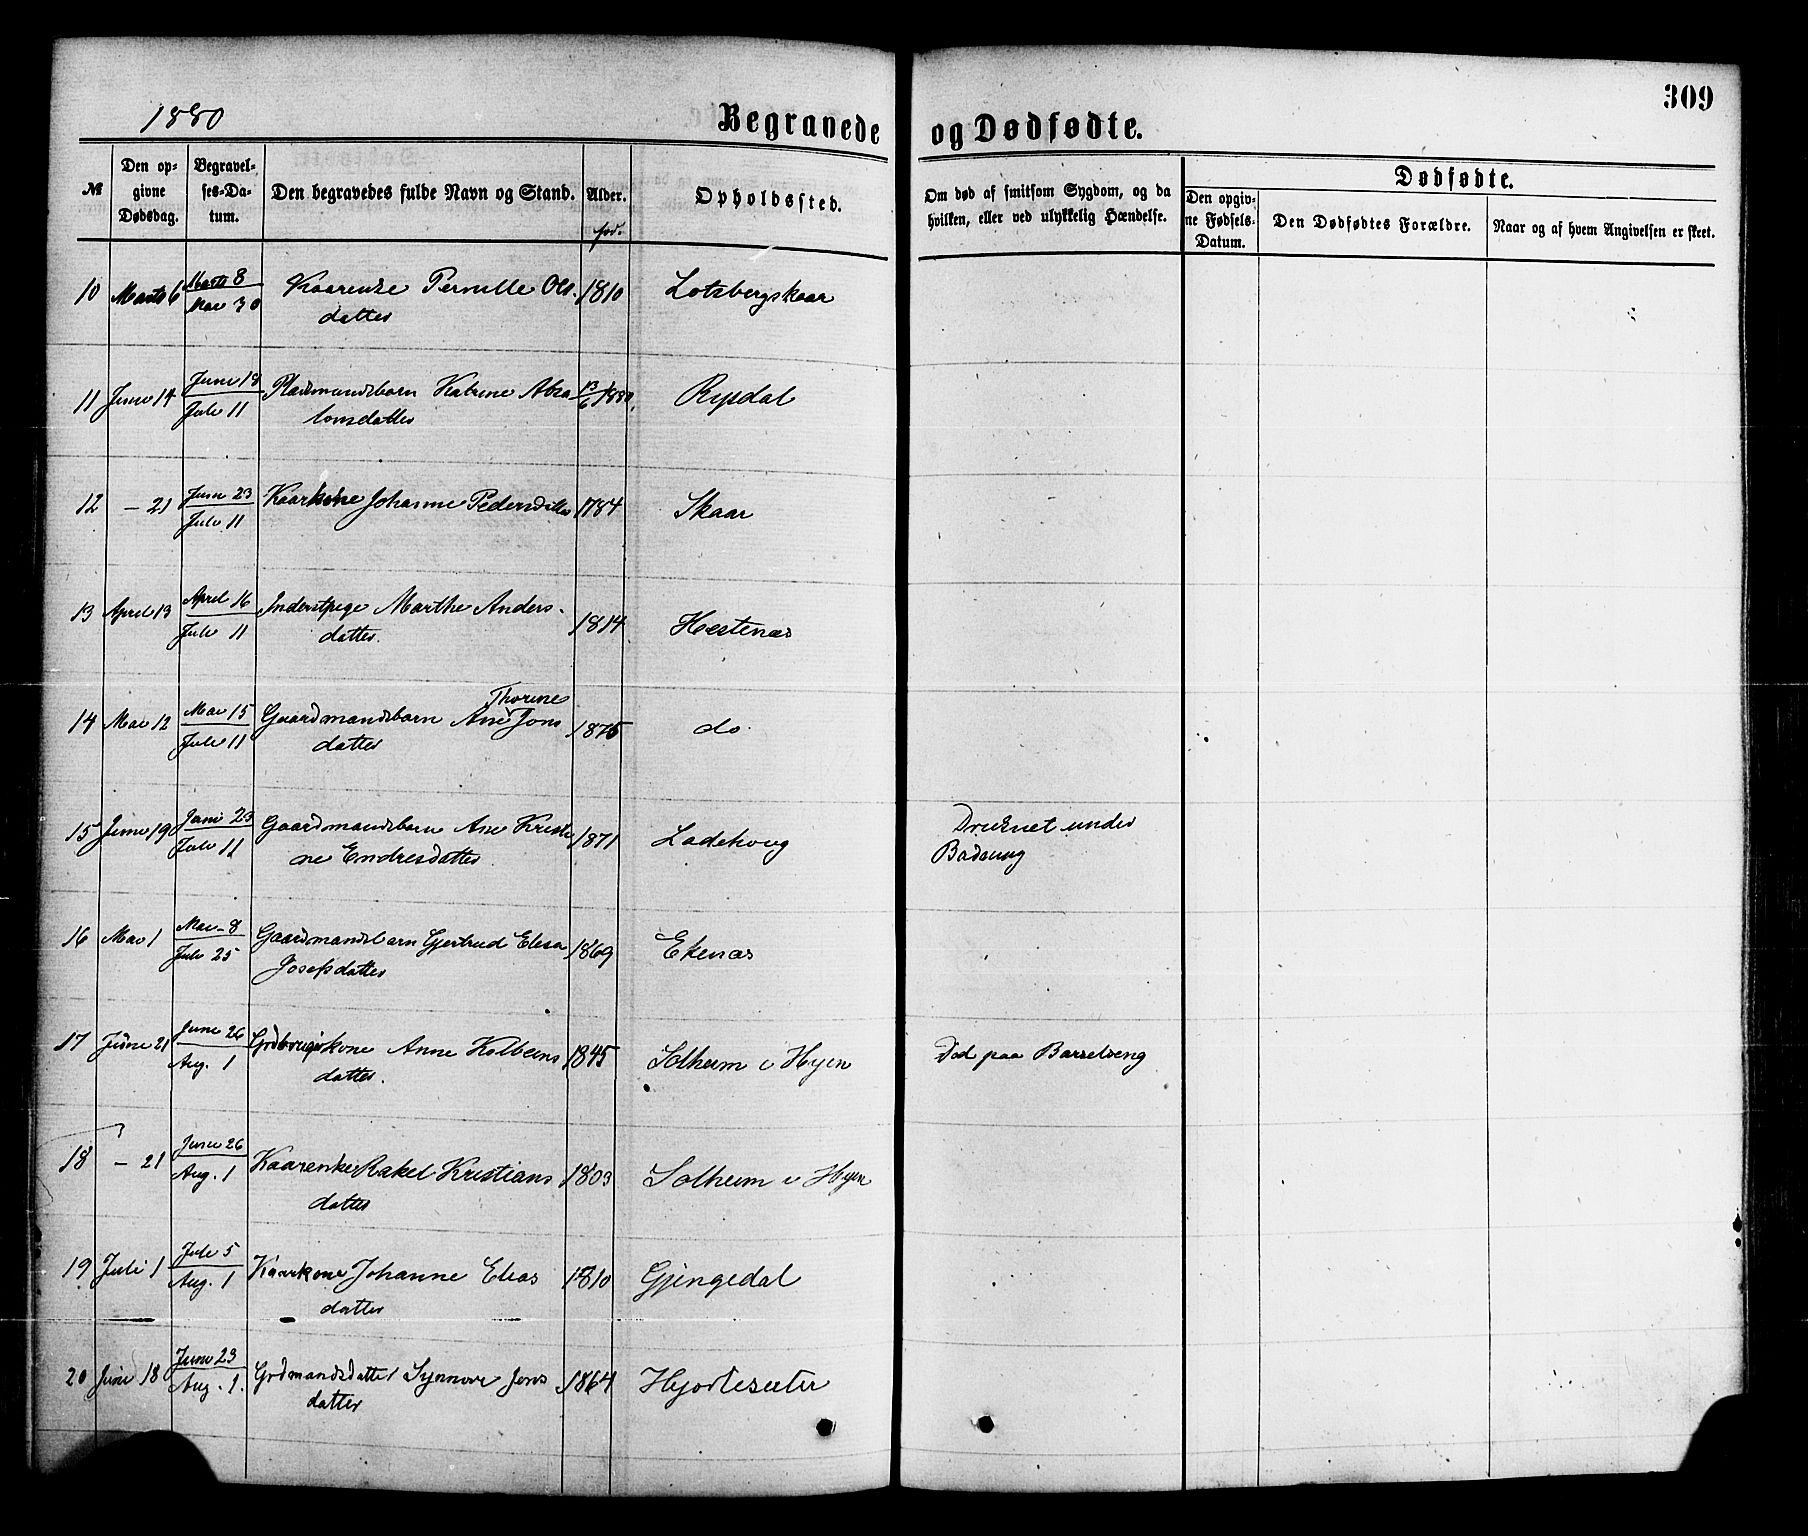 309
1880
Begravede og Dødfødte.
№
Den opgivne Dødsdag.
Begravelses-Datum.
Den begravedes fulde Navn og Stand.
Alder.
fød.
Opholdssted.
Om død af smitsom Sygdom, og da hvilken, eller ved ulykkelig Hændelse.
Dødfødte.
Den opgivne Fødsels-Datum.
Den Dødfødtes Forældre.
Naar og af hvem Angivelsen er skeet.
10 Marts 6 Marts 8 Kaarenke Pernille Ols- 1810 Lotsbergskaar
Mai 30 datter
11 Juni 14 Juni 18 Pladsmandsbarn Katrine Absa 13/6 1880. Rysdal
Juli 11 lonsdatter
12 - 21 Juni 23 Kaarkone Johanne Pedersdatter 1784 Skaar
Juli 11
13 April 13 April 16 Inderstpige Marthe Anders- 1814 Hestenæs
Juli 11 datter.
Thorine
14 Mai 12 Mai 15 Gaardmandsbarn Ane Jons 1875 do.
Juli 11 datter
15 Juni 19 Juni 23 Gaardmandsbarn Ane Kristi 1871 Ladehoug Druknet under
Juli 11 ne Endresdatter. Badning
16 Mai 1 Mai 8 Gaardmandsbarn Gjertrud Elisa 1869 Ekenæs
Juli 25 Josefsdatter
17 Juni 21 Juni 26 Grdbrugerkone Anne Kolbeins 1845 Solheim i Hyen Død paa Barselseng
Aug. 1 datter.
18 - 21 Juni 26 Kaarenke Rakel Kristians 1803 Solheim i Hyen
Aug. 1 datter
19 Juli 1 Juli 5 Kaarkone Johanne Elias 1810 Gjengedal
Aug. 1 datter
20 Juni 18 Juni 23 Grdmandsdatter Synnøve Jens 1864 Hjorteseter
Aug. 1. datter